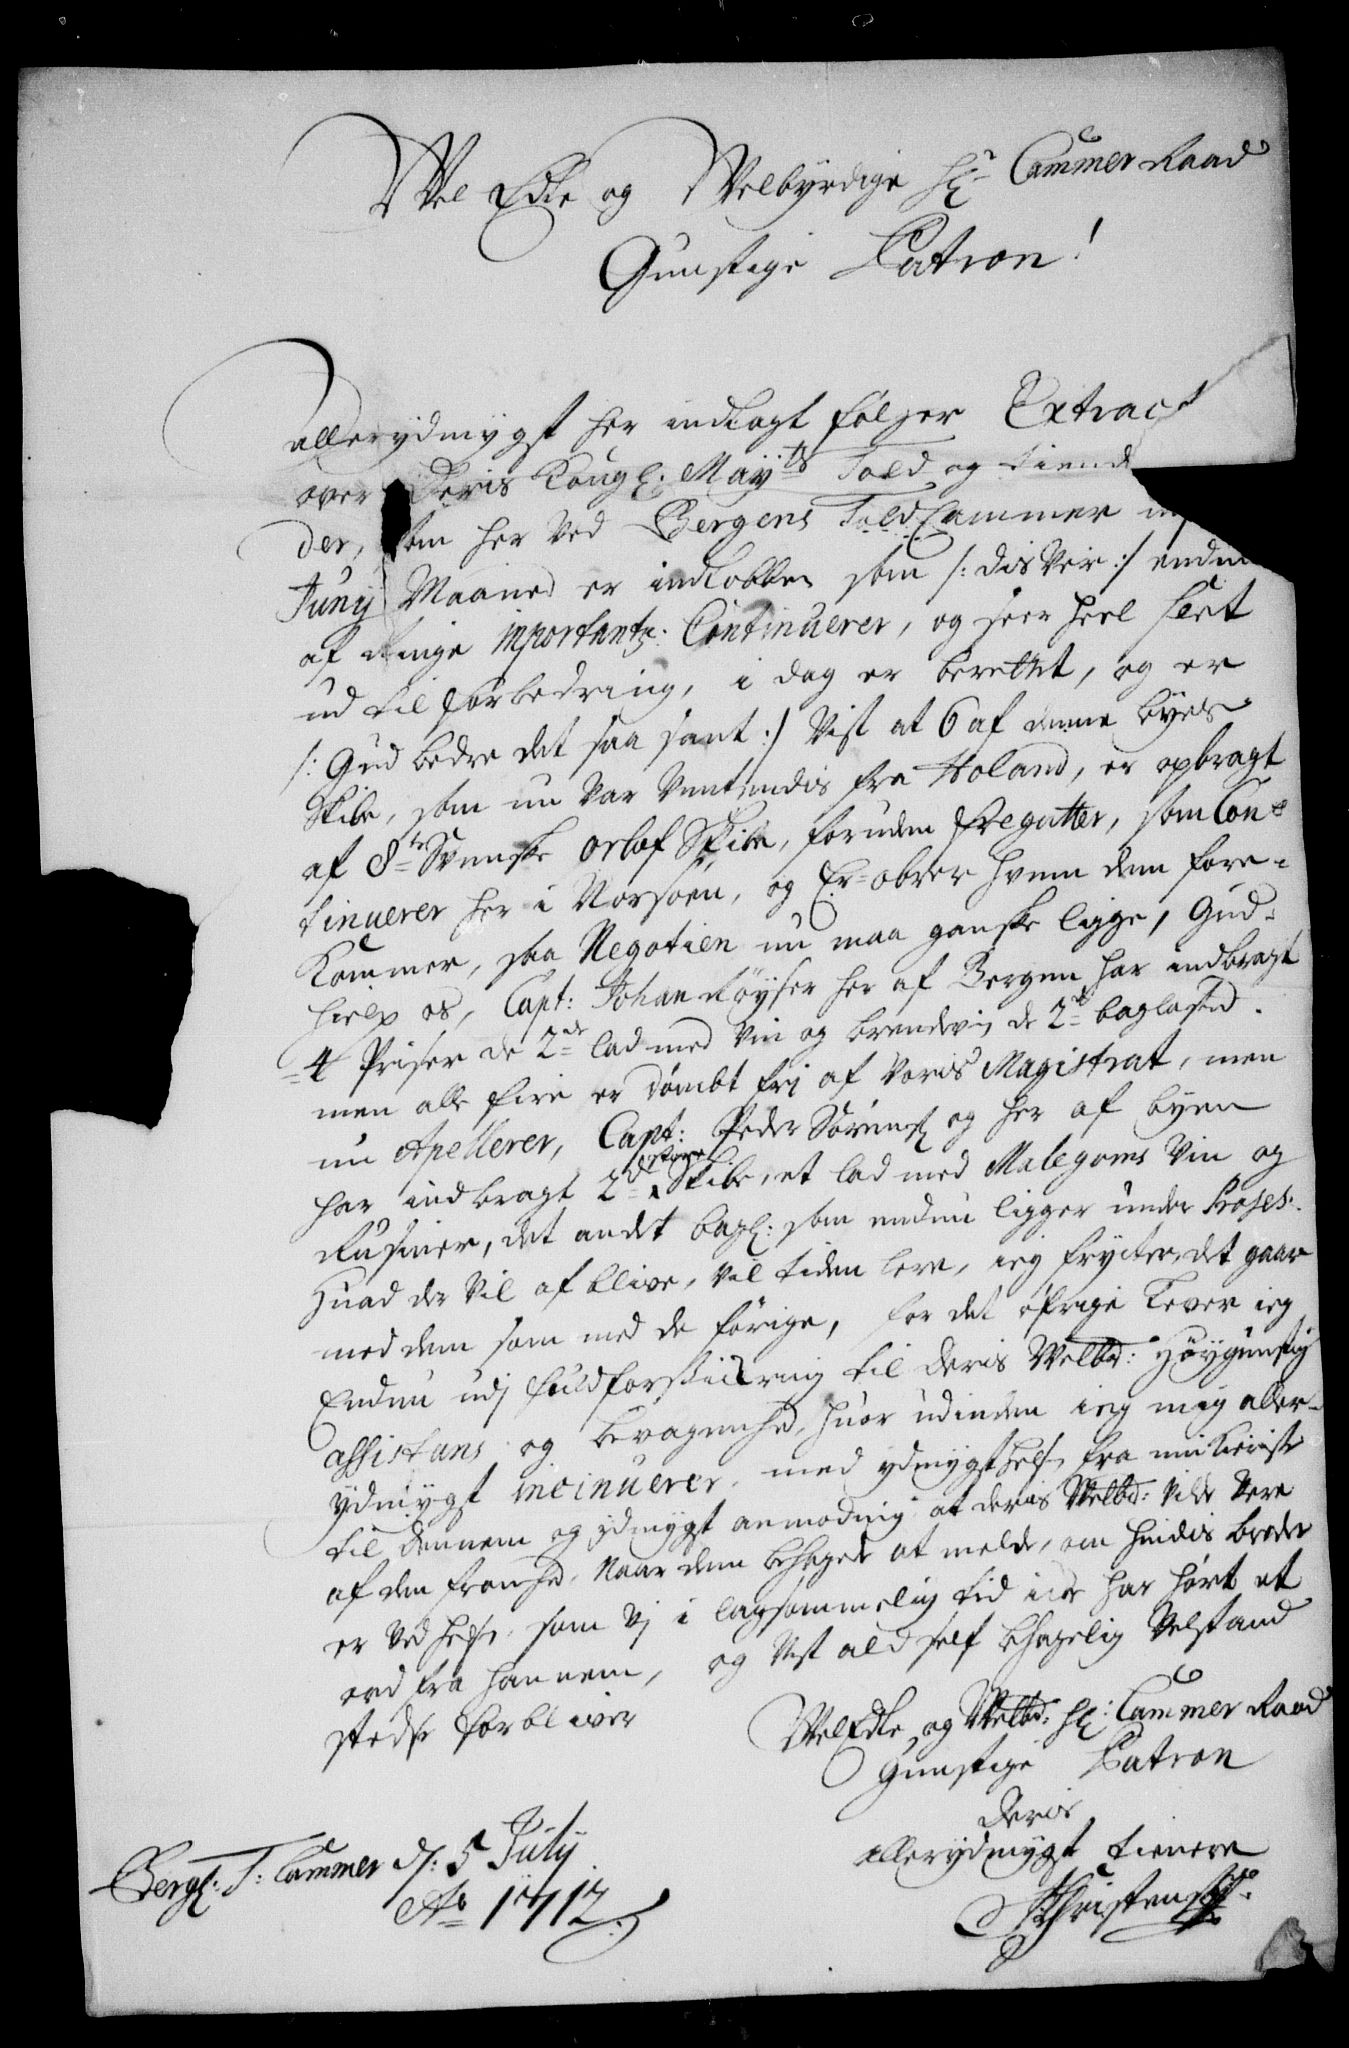 Wel Edle og Welbyrdige Hr Cammer Raad
Gunstige Patron!
allerydmygst her indlagt følger Extract
over Deris Kongl: Mayts Told og tiend
der, som her ved Bergens Told Cammer
Junij Maaned er indkobben som /: dis ver :/ endnu
af ringe importantz: Continuerer, og seer heel slet
ud til forbedring, i dag er berettet, og er
/: Gud bedre det saa sant :/ Vist at 6 af denne byes
Skibe, som nu var Ventendis fra Holand, er opbragt
af 8te Svenske orlof Skibe, foruden Fregatter, som Con=
tinuerer her i Norsøen, og Er=obrer hvem dem fore=
kommer, saa Negotien nu maa ganske ligge, Gud=
hielp os, Capt: Johan Røyser her af Bergen har indbragt
4 Priser de 2de lad med Viin og brendeviin de 2de baglasted.
men alle fire er dømbt frj af Voris Magistrat, men
nu Apellerer, Capt: Peder Sørens: og her af byen
har indbragt 2de store Skibe, et lad med Malegoms Vin og
Rusiner, det andet bagl: som endnu ligger under Proses.
Huad der Vil af blive, Vil tiden lere, ieg frycter, det gaar
med dem som med de forige, for det øfrige lever ieg
Endnu udj fuld forsickring til Deris Welbd: Høygunstig
assistans og bevagenhed, huor udinden ieg mig aller=
ydmygst incinuerer, med ydmygst hels: fra min Kieriste
til dennem og ydmygst anmoding at deris Welbd: vilde Vere
af den fromhed, Naar dem behagede at melde, om hindis broder
er Ved helse, som Vj i langsommelig tid icke har hørt et
ord fra hannem, og Nest ald self behagelig Velstand
stedse forbliver
WelEdle og Welbd: Hr: Cammer Raad
Gunstige Patron
Deris
allerydmygst tienere
Bergs: T: Cammer d: 5 July
Ao 1712.